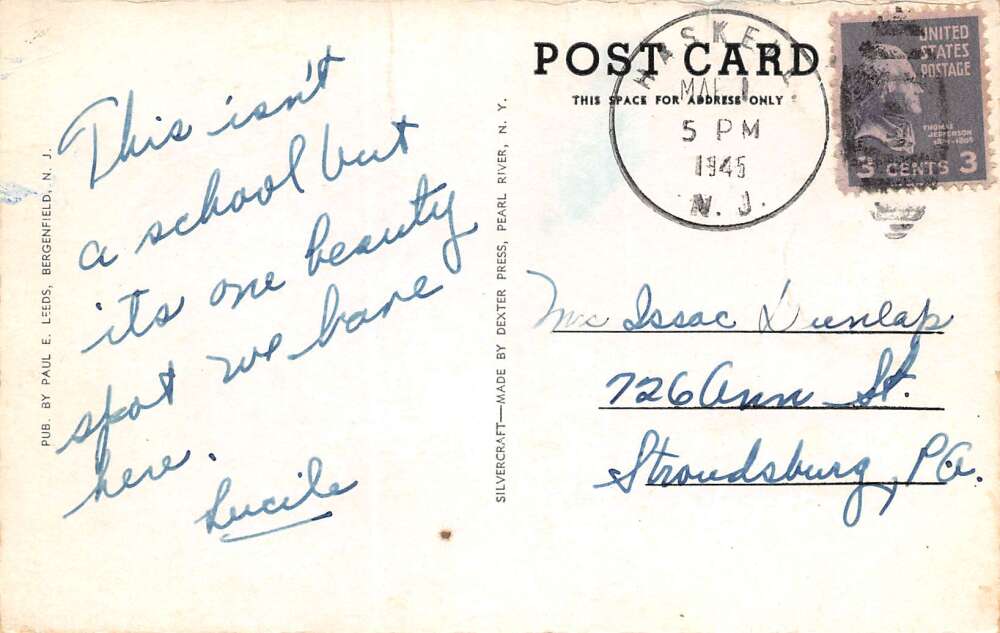 This isn't
a school but
its one beauty
spot we have
here.
Lucile
PUB. BY PAUL E. LEEDS, BERGENFIELD, N. J.
SILVERCRAFT—MADE BY DEXTER PRESS, PEARL RIVER, N. Y.
POST CARD
THIS SPACE FOR ADDRESS ONLY
HASKELL
MAR 1
5 PM
1945
N. J.
UNITED
STATES
POSTAGE
THOMAS
JEFFERSON
1801-1809
3 CENTS 3
Issac Dunlap
726 Ann St.
Stroudsburg, Pa.